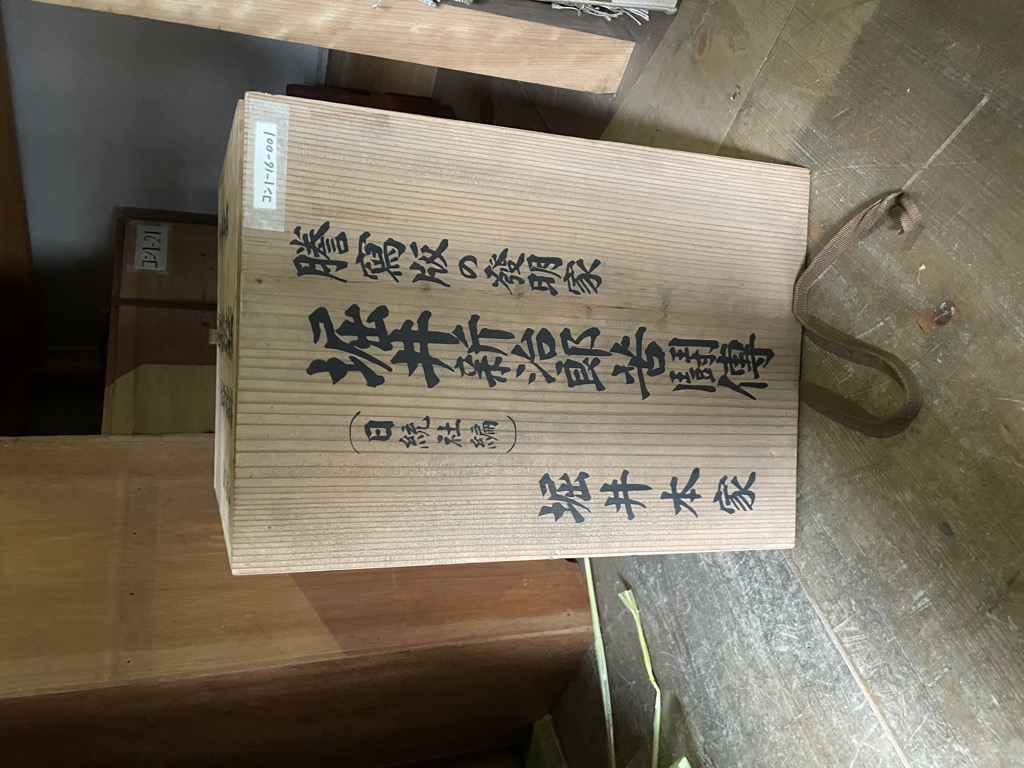 コン1-19-001
謄寫版の發明家
堀井新治郎苦闘傳
(日統社編)
堀井本家
コン1-21